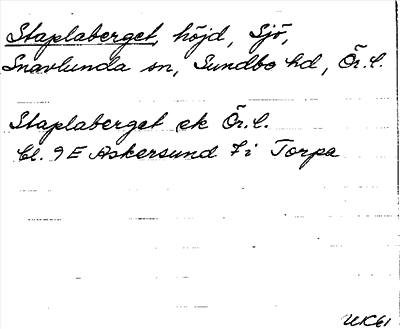 Staplaberget, höjd, Sjö,
Snavlunda sn, Sundbo hd, Ör. l.
Staplaberget ek Ör. l.
bl. 9E Askersund 7i Torpa
UK61